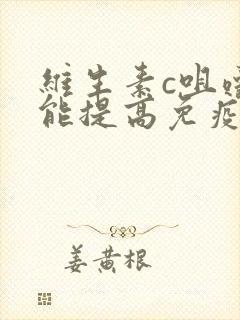 維生素c咀嚼
能提高免疫
姜黄根